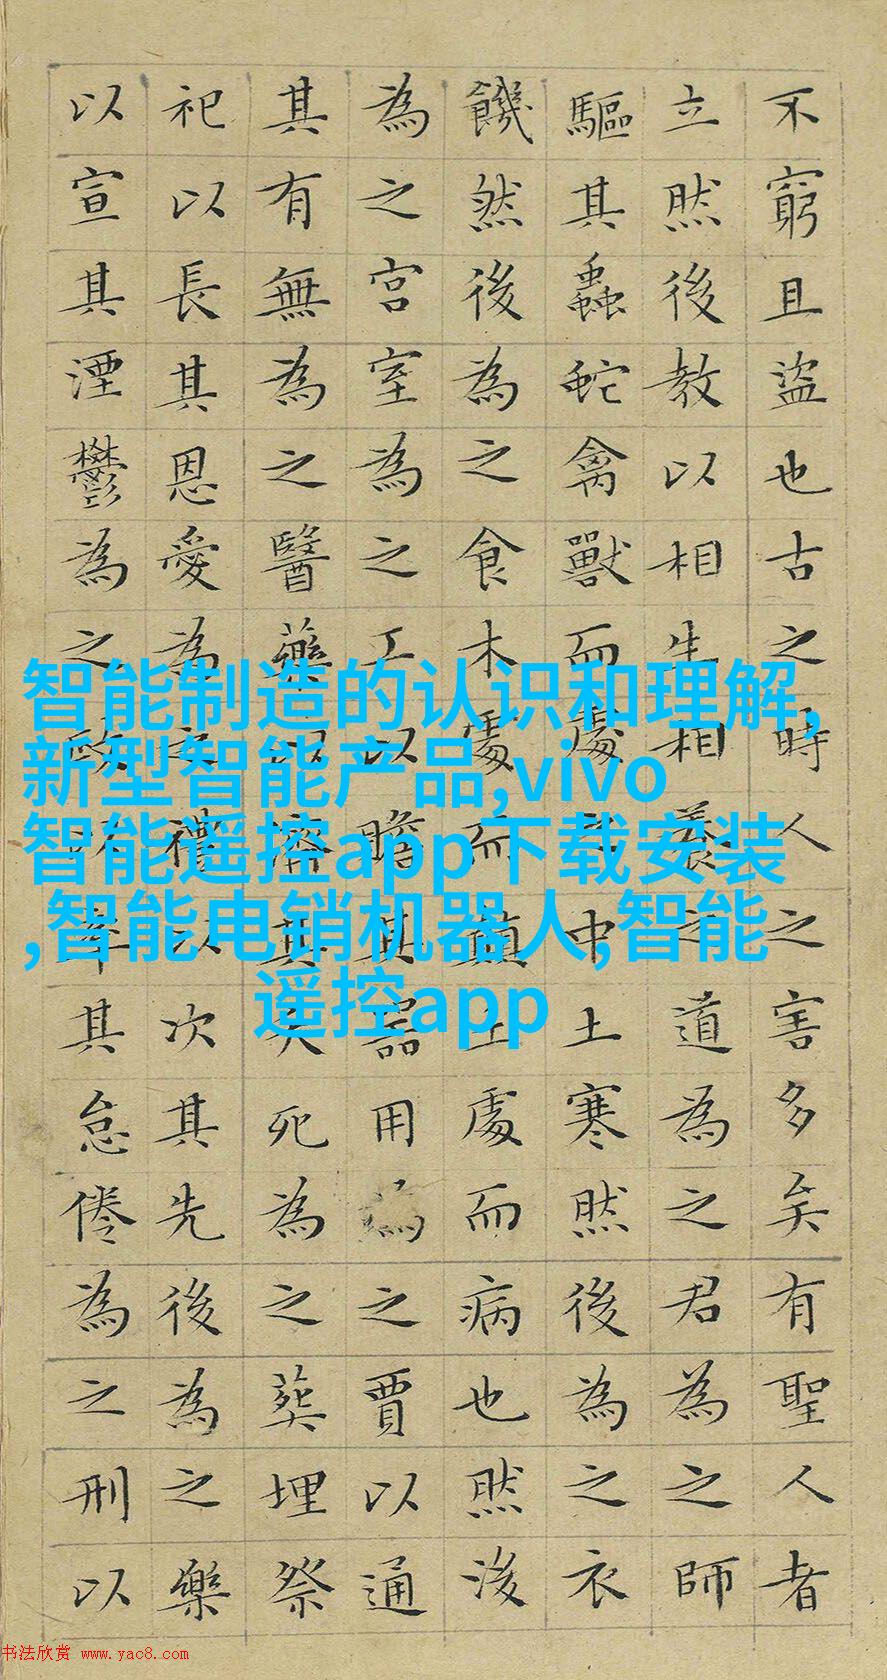 不窮且盜也古之時人之害多矣有聖人者
立然後教以相生相養之道為之君為之師
驅其蟲蛇禽獸而處之中土寒然後為之衣
饑然後為之食木處而顛土處而病也然後
為之宮室為之工以贍其器用為之賈以通
其有無為之醫藥以濟其夭死為之葬埋祭
祀以長其恩愛為之禮以次其先後為之樂
以宣其湮鬱為之政以率其怠倦為之刑以
智能制造的认识和理解,
新型智能产品,vivo
智能遥控app下载安装
,智能电销机器人,智能
遥控app
书法欣赏 www.yac8.com